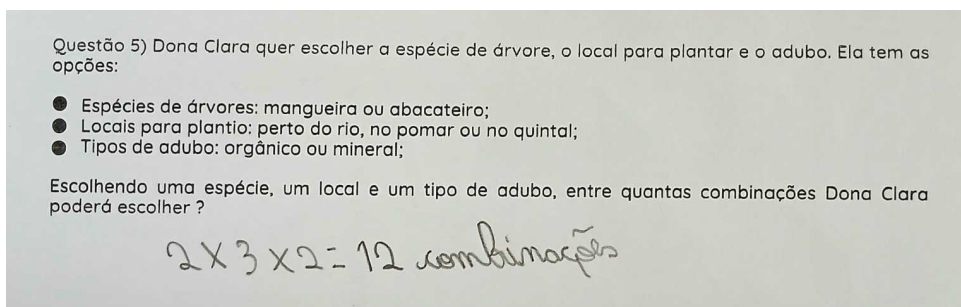 Questão 5) Dona Clara quer escolher a espécie de árvore, o local para plantar e o adubo. Ela tem as
opções:
● Espécies de árvores: mangueira ou abacateiro;
● Locais para plantio: perto do rio, no pomar ou no quintal;
● Tipos de adubo: orgânico ou mineral;
Escolhendo uma espécie, um local e um tipo de adubo, entre quantas combinações Dona Clara
poderá escolher ?
2 x 3 x 2 = 12 combinações